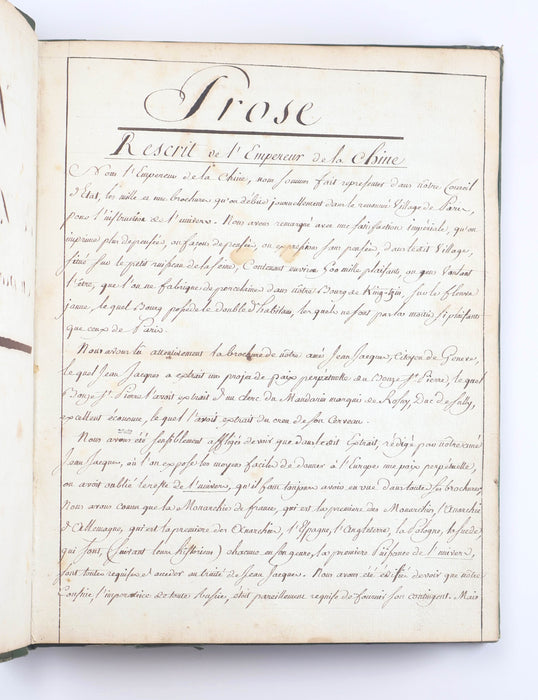 Prose
Rescrit de l'Empereur de la Chine
Nous l'Empereur de la Chine, nous sommes fait representer dans nôtre Conseil
d'Etat, les mille et une brochures qu'on debite journellement dans le renommé Village de Paris,
pour l'instruction de l'univers. Nous avons remarqué avec une satisfaction impériale, qu'on
imprime plus de pensées, ou façons de penser, ou expressions sans pensées, dans ledit Village,
situé sur le petit ruisseau de la Seine, Contenant environ 500 mille plaisants, ou gens voulant
l'être, que l'on ne fabrique de porcelaine dans nôtre Bourg de King-tzin, sur le fleuve
jaune, lequel Bourg possede le double d'habitans, lesquels ne sont pas la moitié si plaisants
que ceux de Paris.
Nous avons lu attentivement la brochure de nôtre amé Jean Jacques, Citoyen de Geneve,
lequel Jean Jacques a extrait un projet de paix perpétuelle du Bonze St. Pierre, lequel
Bonze St. Pierre l'avoit extrait d'un clerc du Mandarin marquis de Rosny, Duc de Sully,
excellent économe, lequel l'avoit extrait du creux de son Cerveau.
Nous avons été sensiblement affligés de voir que dans ledit Extrait, rédigé par nôtre amé
Jean Jacques, où l'on expose les moyens faciles de donner à l'Europe une paix perpétuelle,
on avoit oublié le reste de l'univers, qu'il faut toujours avoir en vue dans toutes ses brochures.
Nous avons connu que la Monarchie de france, qui est la premiere des Monarchies, l'Anarchie
d'Allemagne, qui est la premiere des Anarchies, l'Espagne, l'Angleterre, la Pologne, la Suede,
qui sont, (suivant leurs historiens) chacune en son genre, la premiere Puissance de l'univers,
sont toutes requises d'acceder au traité de Jean Jacques. Nous avons été édifiés de voir que nôtre
Cousine, l'imperatrice de toute Russie, étoit pareillement requise de fournir son contingent. Mais